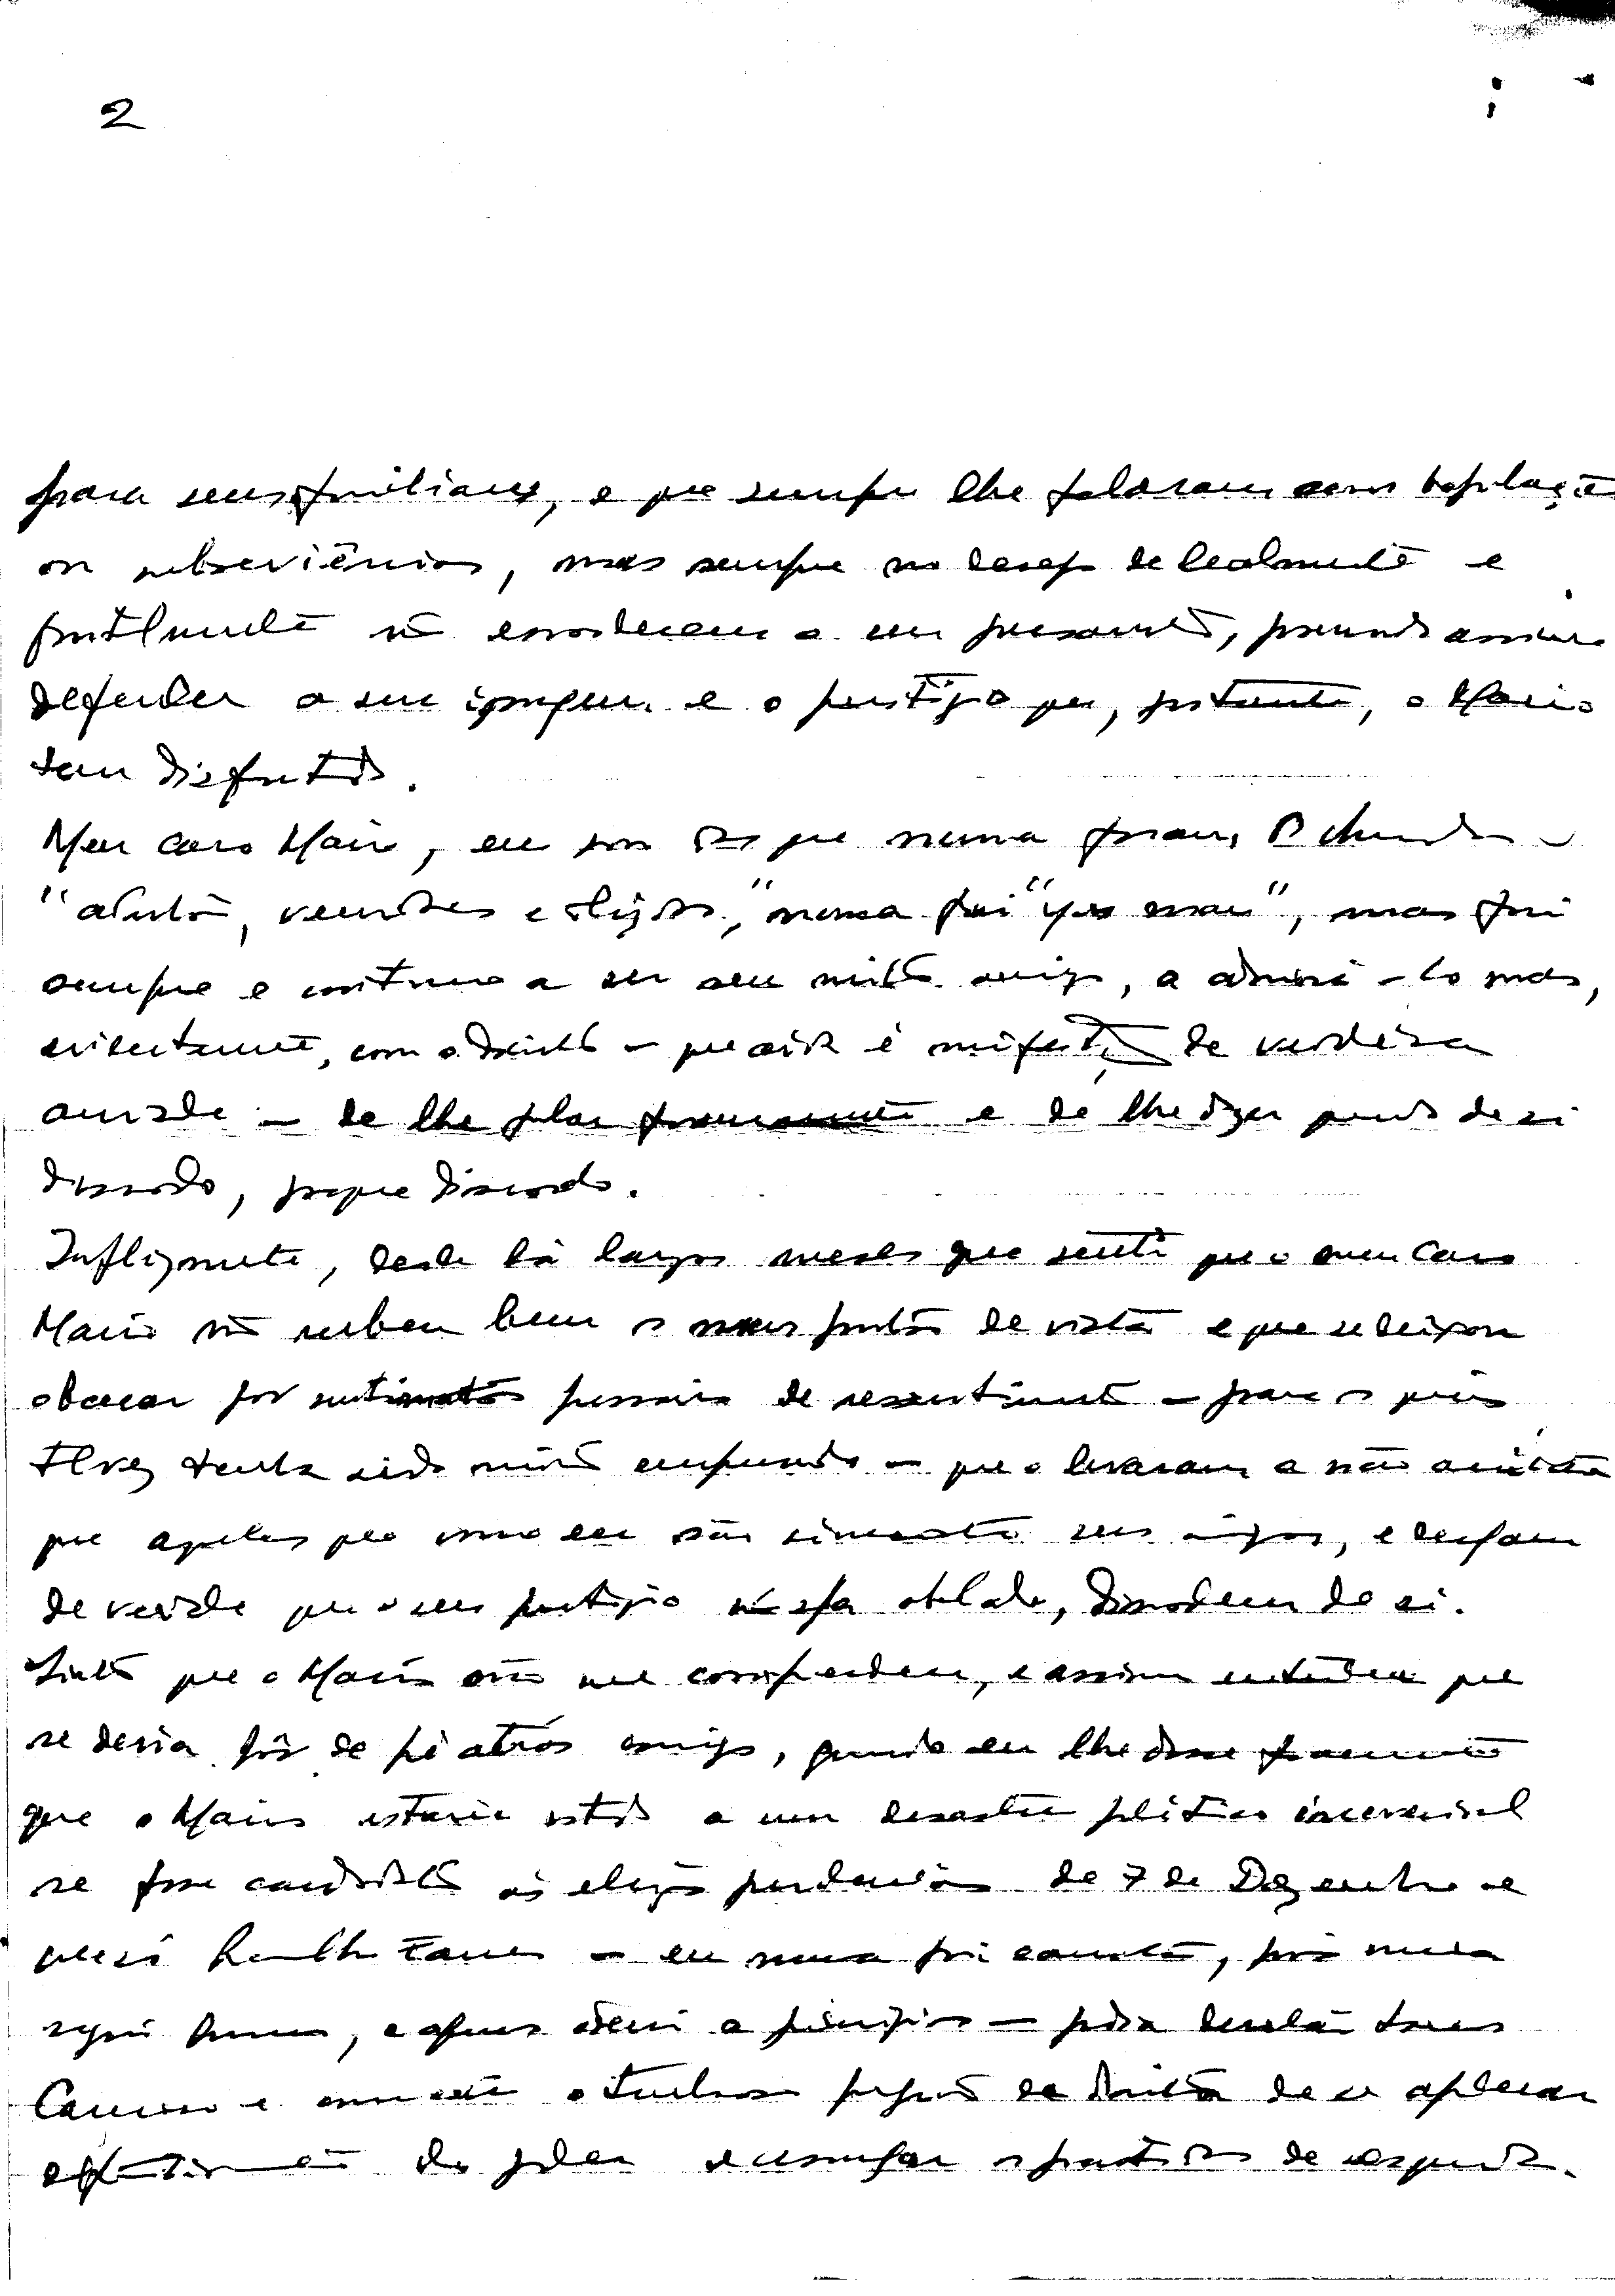 2
para seus familiares, e que sempre lhe falaram sem bajulação
ou subserviências, mas sempre no desejo de lealmente e
frontalmente não esconderem o seu pensamento, procurando assim
defender a sua imagem e o prestígio que, justamente, o Mário
tem disfrutado.
Meu caro Mário, eu sou dos que nunca foram
"atentos, veneradores e obrigados", nunca fui "yes man", mas fui
sempre e continuo a ser seu muito amigo, a admirá-lo mas,
evidentemente, com o direito – que aida é manifestação de verdadeira
amizade – de lhe falar francamente e de lhe dizer quando de si
discordo, porque discordo.
Infelizmente, desde há largos meses que senti que o meu caro
Mário não recebeu bem os meus pontos de vista e que se deixou
obcecar por sentimentos pessoais de ressentimento – para os quais
talvez tenha sido muito empurrado – que o levaram a não aceitar
que aqueles que como eu são sinceramente seus amigos, e desejam
de verdade que o seu prestígio não seja abalado, discordem de si.
Sinto que o Mário não me compreendeu, e assim entendeu que
se devia pôr de pé atrás comigo, quando eu lhe disse francamente
que o Mário estaria votado a um desastre político irreversível
se fosse candidato às eleições presidenciais de 7 de Dezembro e
que só Ramalho Eanes – eu nunca fui eanista, pois nunca
segui homens, e apenas aderi a princípios – podia derrotar Soares
Carneiro e o tenebroso projecto da direita de se apoderar
do poder e esmagar os partidos de esquerda.